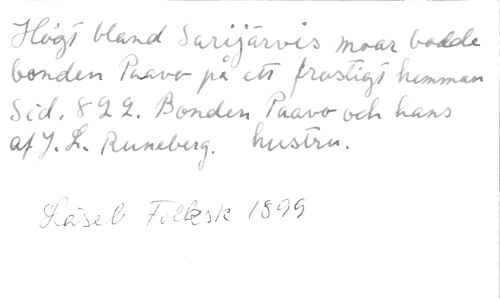 Högt bland Sarijärvis moar bodde
bonden Paavo på ett frostigt hemman
Sid. 822. Bonden Paavo och hans
af J. L. Runeberg. hustru.
Läseb Folksk 1899